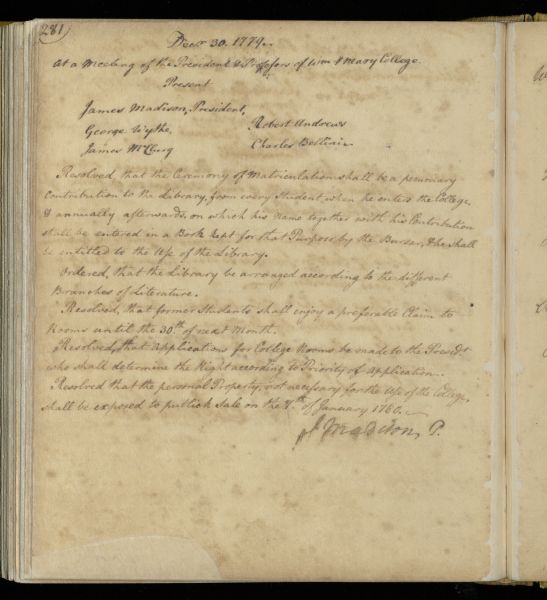 281
Decr 30. 1779.
At a Meeting of the President & Professors of Wm & Mary College.
Present
James Madison, President,
George Wythe, Robert Andrews
James McClurg Charles Bellini
Resolved, that the Ceremony of Matriculation shall be a pecuniary
Contribution to the Library, from every Student when he enters the College,
& annually afterwards, on which his Name together with his Contribution
shall be entered in a Book kept for that Purpose by the Bursar, & he shall
be entitled to the Use of the Library.
Ordered, that the Library be arranged according to the different
Branches of Literature.
Resolved, that former Students shall enjoy a preferable Claim to
Rooms until the 30th of next Month.
Resolved, that Applications for College Rooms be made to the Presidt
who shall determine the Right according to Priority of Application.
Resolved that the personal Property, not necessary for the Use of the College,
shall be exposed to publick Sale on the th of January 1780.
J Madison, P.